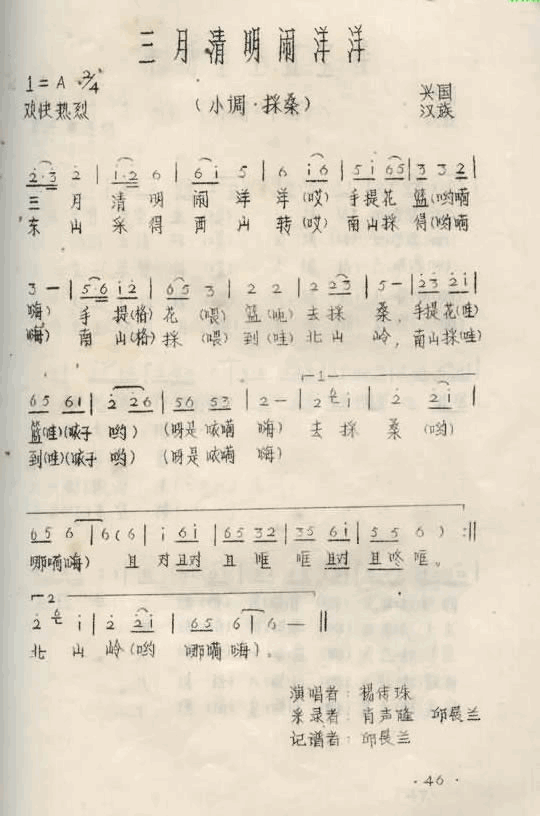 三月清明闹洋洋
1=A 2/4
(小调·採桑)
兴国
欢快热烈
汉族
2·3 2 | 1·2 6 | 6 i 5 | 6 i6 | 5 i 65 | 3 3 2 |
三 月 清 明 闹 洋 洋 (哎) 手提花 篮(哟嗬
东 山 采 得 西 山 转 (哎) 南山採 得(哟嗬
3 — | 5·6 i2 | 65 3 | 2 2 | 2 23 | 5 — | 23 2i |
嗨) 手 提(格) 花 (喂) 篮(吔) 去 採 桑, 手提花(哇)
嗨) 南 山(格) 採 (喂) 到(哇) 北 山 岭, 南山採(哇)
65 61 | 2 26 | 56 53 | 2 — | 2 i | 2 2i |
1
篮(哇)(哝子 哟) (呀是哝嗬 嗨) 去 採 桑 (哟)
到(哇)(哝子 哟) (呀是哝嗬 嗨)
65 6 | 6 (6 | i 6i | 65 32 | 35 6i | 55 6 ) :||
哪嗬嗨) 且 对 且对 且 哐 哐 且对 且咚 哐。
2
2 i | 2 2i | 65 6 | 6 — ||
北 山 岭 (哟 哪嗬嗨)。
演唱者: 楊传珠
采录者: 肖声隆 邱晨兰
记谱者: 邱晨兰
·46·